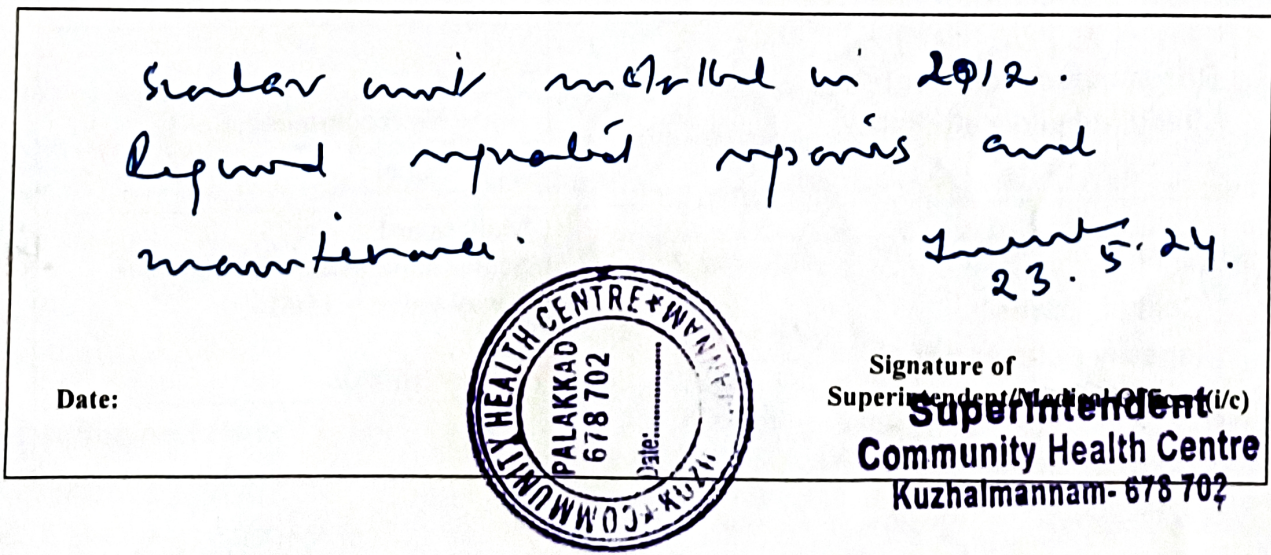 unit installed in 2012.
Required repeated repairs and
maintenance.
23.5.24.
COMMUNITY HEALTH CENTRE * MANNAM
KUZH
PALAKKAD
678 702
Date:
Date:
Signature of
Superintendent/Medical Officer(i/c)
Superintendent
Community Health Centre
Kuzhalmannam- 678 702